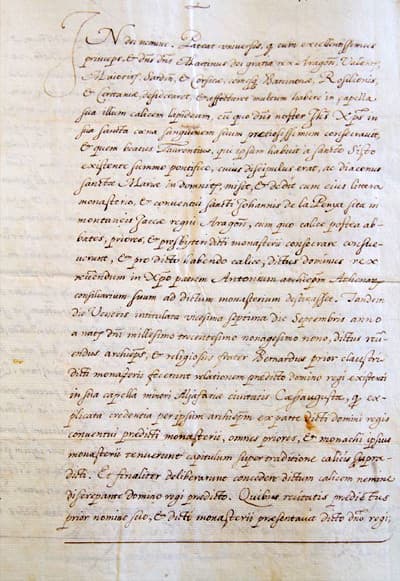 IN dei nomine, Pateat vniuersis, q cum excellentissimus
princeps, et dñs dñs Martinus dei gratia rex Aragon, Valent,
Maioric, Sardin, et Corsicæ, comesq Barcinonæ, Rosilionis,
et Ceritaniæ desideraret, et affectaret multum habere in capella
sua illum calicem lapideum, cũ quo dñus noster Jhs Xps in
sua sancta cœna sanguinem suum pretiosissimum consecrauit,
et quem beatus Laurentius, qui ipsam habuit a sancto Sisto
existente summo pontifice, cuius discipulus erat, ac diaconus
sanctæ Mariæ in domnica, misit, et dedit cum eius littera
monasterio, et conventui sancti Johannis de la Penya sita in
montaneis Jaccæ regni Aragon, cum quo calice postea ab-
bates, priores, et presbyteri dicti monasterii consecrare consue-
verunt, et pro dicto habendo calice, dictus dominus rex
reverendum in Xpo patrem Antonium archiepm Athenar
consiliarium suum ad dictum monasterium destinasset. Tandem
die Veneris intitulata vicesima septima die Septembris anno
a natte dni millesimo trecentesimo nonagesimo nono, dictus reu-
endus archieps, et religiosus frater Bernardus prior claustri
dicti monasterii fecerunt relationem predicto domino regi existenti
in sua capella minori Aljafariæ ciuitatis Cæsaugustæ, q ex-
plicata credentia per ipsum archiepm ex parte dicti domini regis
conventui predicti monasterii, omnes priores, et monachi ipsius
monasterii tenuerunt capitulum super traditione calicis supra-
dicti. Et finaliter deliberarunt concedere dictum calicem nemine
discrepante domino regi predicto. Quibus recitatis predictus
prior nomine suo, et dicti monasterii presentauit dicto dño regi,